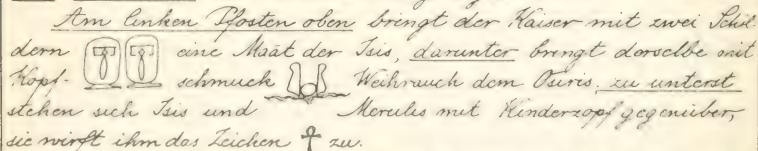 Am linken Pfosten oben bringt der Kaiser mit zwei Schil
dern eine Maat der Isis, darunter bringt derselbe mit
Kopf- schmuck Weihrauch dem Osiris, zu unterst
stehen sich Isis und Merulis mit Kinderzopf gegenüber,
sie wirft ihm das Zeichen ☥ zu.